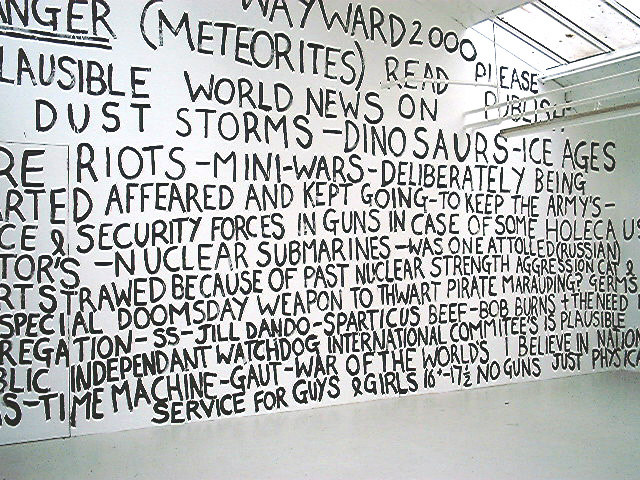 ANGER (METEORITES) WAYWARD 2000
LAUSIBLE WORLD NEWS ON READ PLEASE
DUST STORMS-DINOSAURS-ICE AGES
RE RIOTS-MINI-WARS-DELIBERATELY BEING
ARTED AFFEARED AND KEPT GOING-TO KEEP THE ARMY'S-
CE & SECURITY FORCES IN GUNS IN CASE OF SOME HOLECAUS
TOR'S -NUCLEAR SUBMARINES-WAS ONE ATTOLLED (RUSSIAN)
RT STRAWED BECAUSE OF PAST NUCLEAR STRENGTH AGGRESSION CAT &
SPECIAL DOOMSDAY WEAPON TO THWART PIRATE MARAUDING? GERMS
REGATION-SS-JILL DANDO-SPARTICUS BEEF-BOB BURNS + THE NEED
BLIC INDEPENDANT WATCHDOG INTERNATIONAL COMMITEE'S IS PLAUSIBLE
S-TIME MACHINE-GAUT-WAR OF THE WORLDS I BELIEVE IN NATION
SERVICE FOR GUYS & GIRLS 16+-17½ NO GUNS JUST PHYSIC